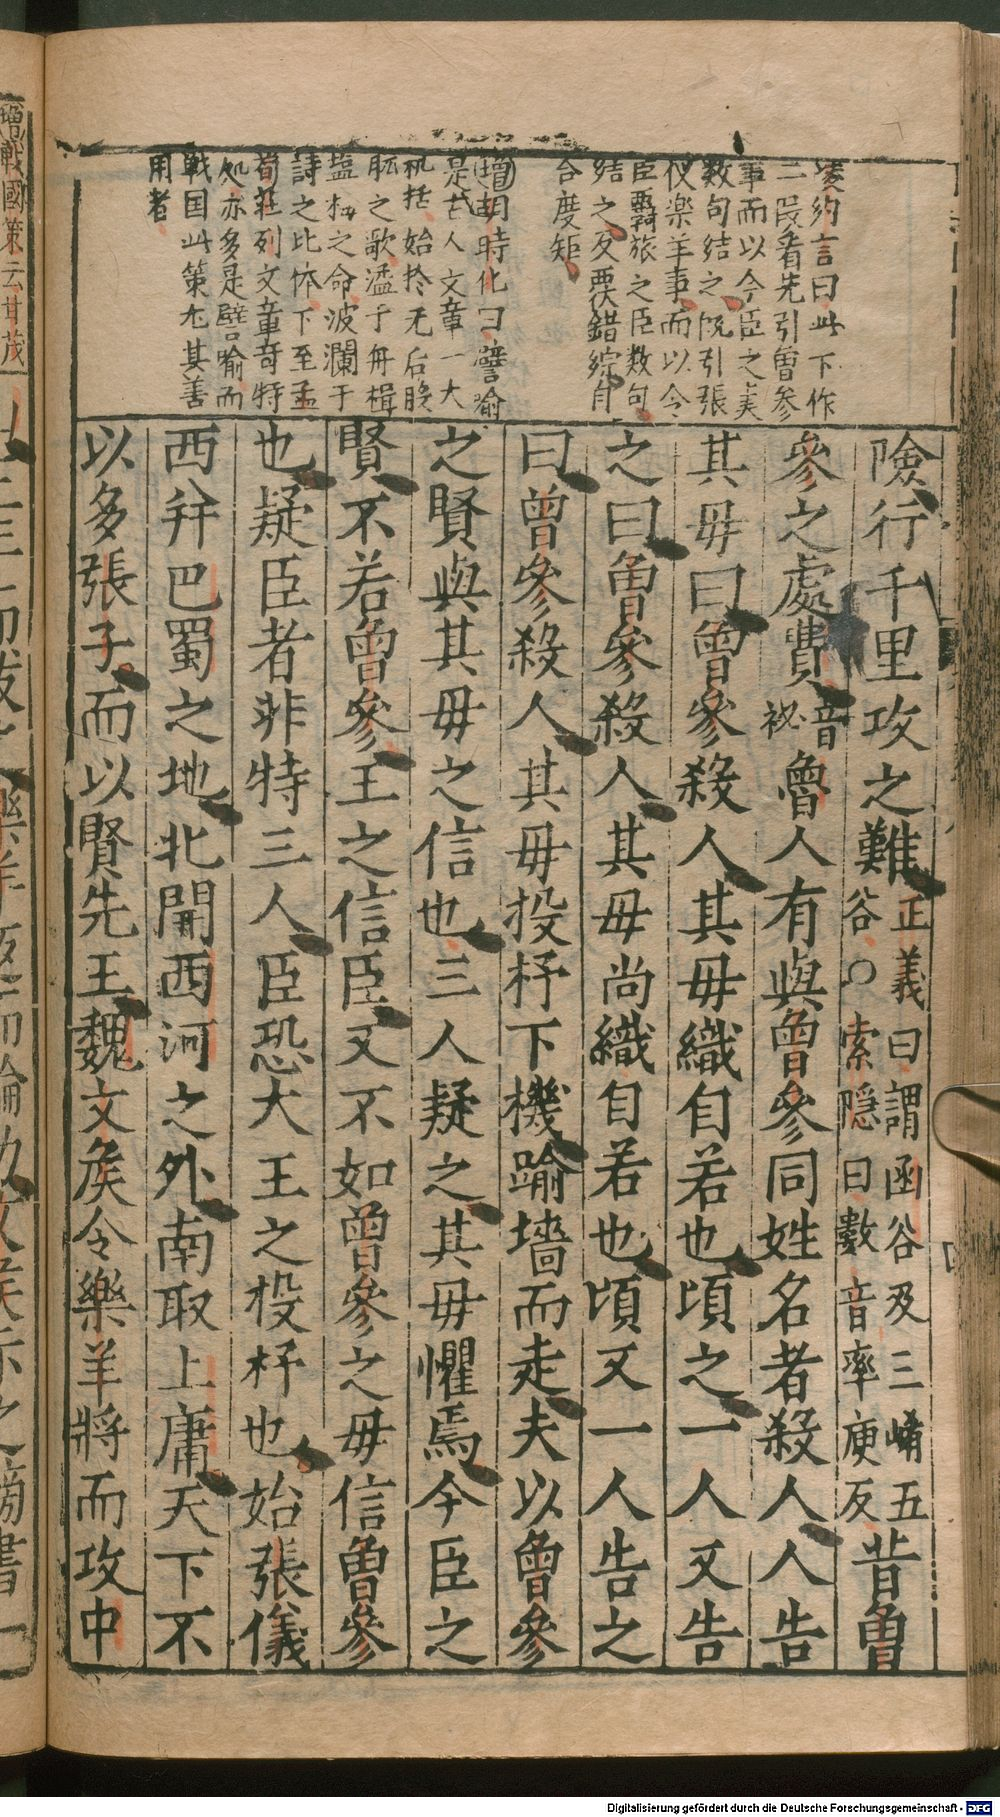 凌約言曰此下作
二段看先引曽参
事而以今臣之賢
数句結之既引張
仪楽羊事而以今
臣羇旅之臣数句
結之反覆錯綜自
合度矩
增胡時化曰譬喻
是古人文章一大
机括始扵无后股
肱之歌溢于舟楫
塩梅之命波瀾于
詩之比体下至孟
荀莊列文章竒特
処亦多是譬喻而
戰国此策尤其善
用者
險行千里攻之難正義曰謂函谷及三崤五
谷〇索隠曰數音率庾反昔曾
參之處費音祕魯人有與曾參同姓名者殺人人告
其母曰曾參殺人其母織自若也頃之一人又告
之曰曾參殺人其母尚織自若也頃又一人告之
曰曾參殺人其母投杼下機踰墻而走夫以曾參
之賢與其母之信也三人疑之其母懼焉今臣之
賢不若曾參王之信臣又不如曾參之母信曾參
也疑臣者非特三人臣恐大王之投杼也始張儀
西并巴蜀之地北開西河之外南取上庸天下不
以多張子而以賢先王魏文矦令樂羊將而攻中
增戰國策云甘茂
Digitalisierung gefördert durch die Deutsche Forschungsgemeinschaft - DFG